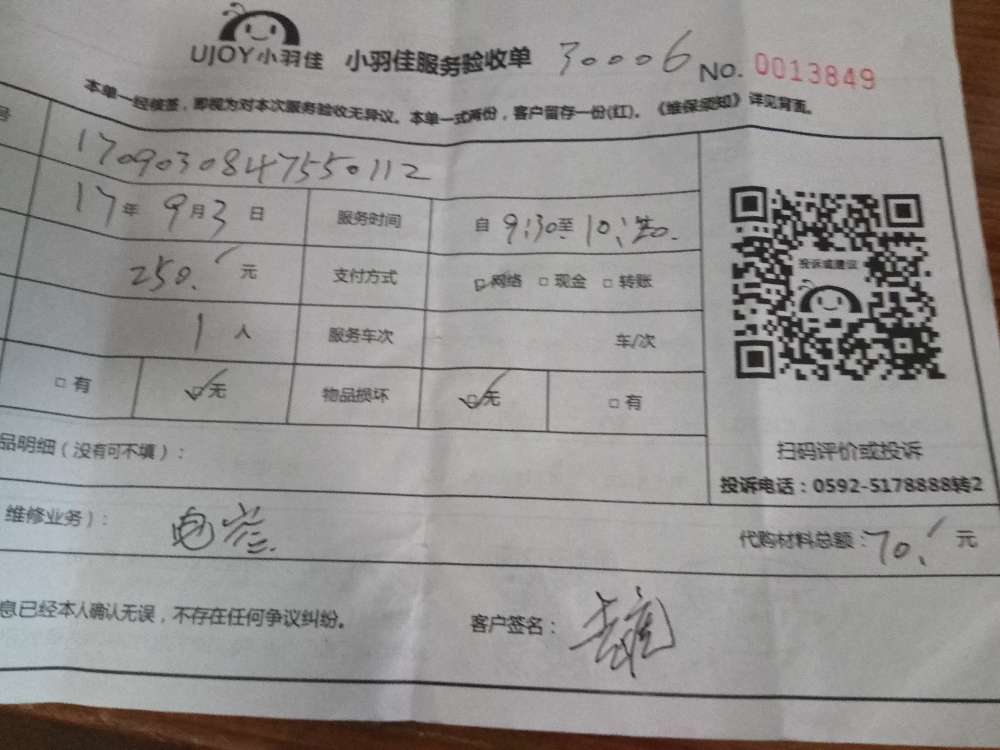 UJOY小羽佳 小羽佳服务验收单 30006 NO. 0013849
本单一经核签，即视为对本次服务验收无异议。本单一式两份，客户留存一份(红)。《维保须知》详见背面。
号 1709030847550112
17年9月3日 服务时间 自9:30至10:
250.元 支付方式 网络 现金 转账
1人 服务车次 车/次
有 无 物品损坏 无 有
投诉或建议
扫码评价或投诉
投诉电话：0592-5178888转2
品明细（没有可不填）：
维修业务）： 代购材料总额：70.元
息已经本人确认无误，不存在任何争议纠纷。 客户签名：